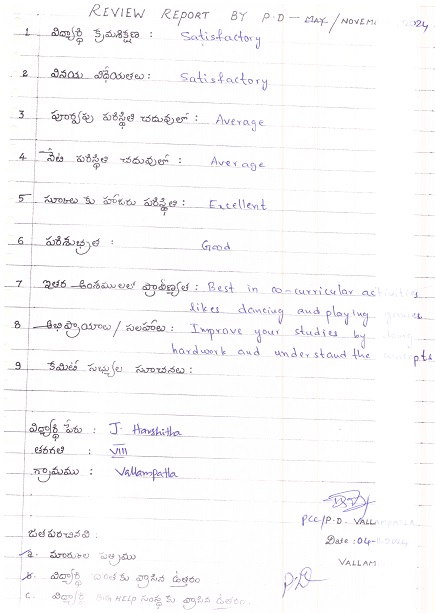 REVIEW REPORT BY P.D - MAY/NOVEM 2024
1 విద్యార్థి క్రమశిక్షణ : Satisfactory
2 వినయ విధేయతలు : Satisfactory
3 పూర్వపు పరిస్థితి చదువులో : Average
4 నేటి పరిస్థితి చదువులో : Average
5 స్కూలు కు హాజరు పరిస్థితి : Excellent
6 పరిశుభ్రత : Good
7 ఇతర అంశములలో ప్రావీణ్యత : Best in co-curricular activities
likes dancing and playing games
8 అభిప్రాయాలు / సలహాలు : Improve your studies by doing
hardwork and understand the concepts
9 కమిటీ సభ్యుల సూచనలు :
విద్యార్థి పేరు : J. Harshitha
తరగతి : VIII
గ్రామము : Vallampatla
PCC/P.D. VALLAMPATLA
జతపరచినవి : Date : 04-
a. మార్కుల పత్రము VALLAM
b. విద్యార్థి దాత కు వ్రాసిన ఉత్తరం P.D
c. విద్యార్థి BIG HELP సంస్థ కు వ్రాసిన ఉత్తరం